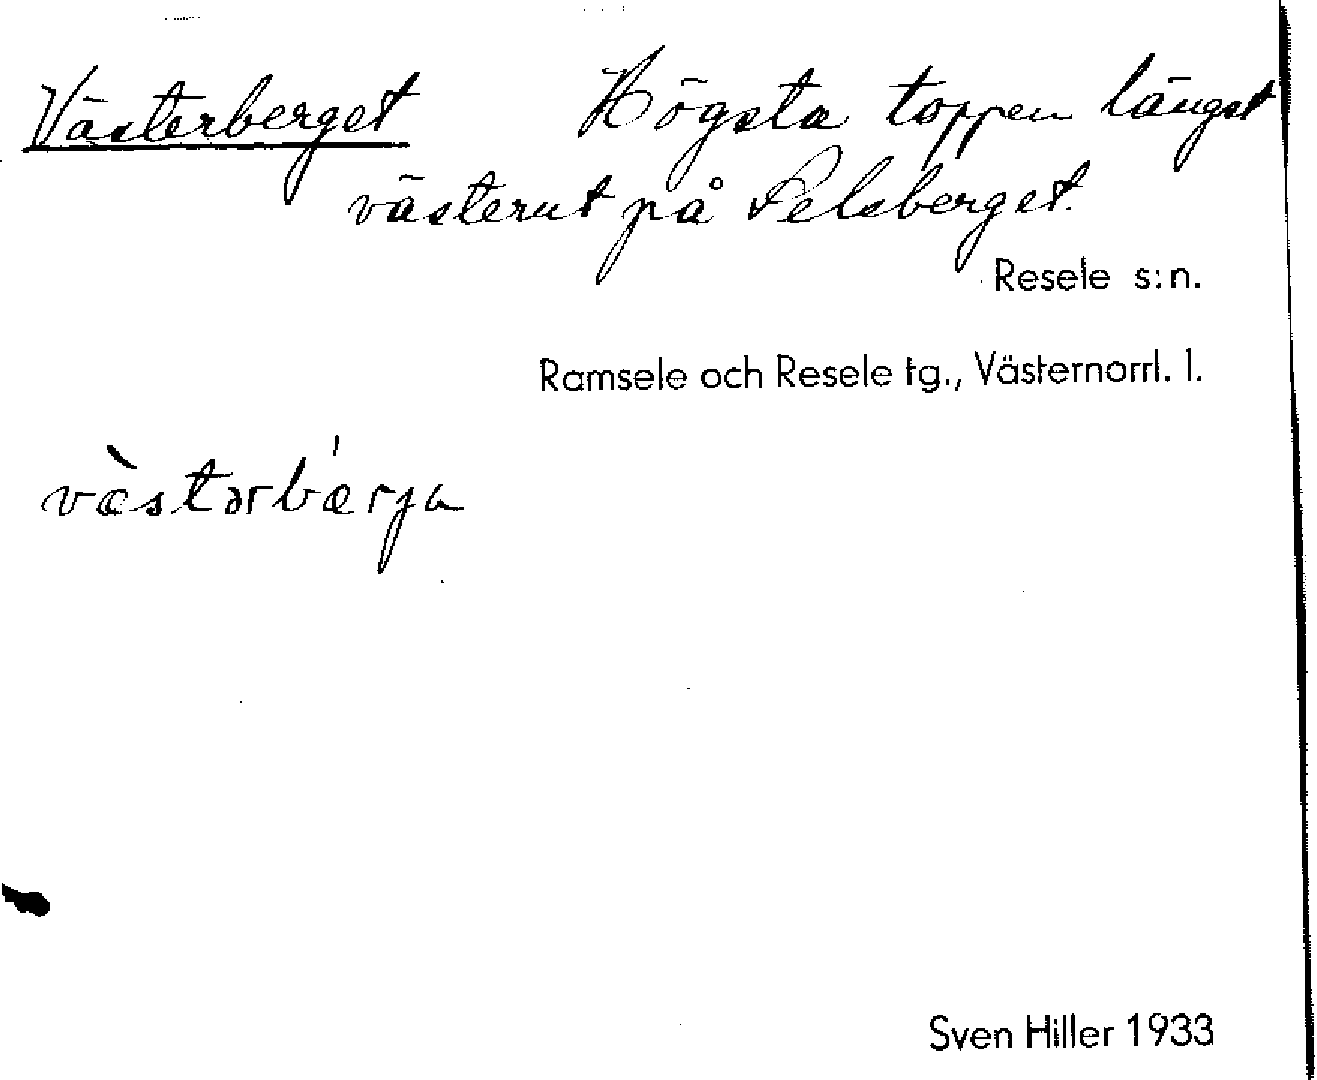 Västerberget Högsta toppen längst
västerut på Pelsberget.
Resele s:n.
Ramsele och Resele tg., Västernorrl. l.
væ̀stərbǽrja
Sven Hiller 1933